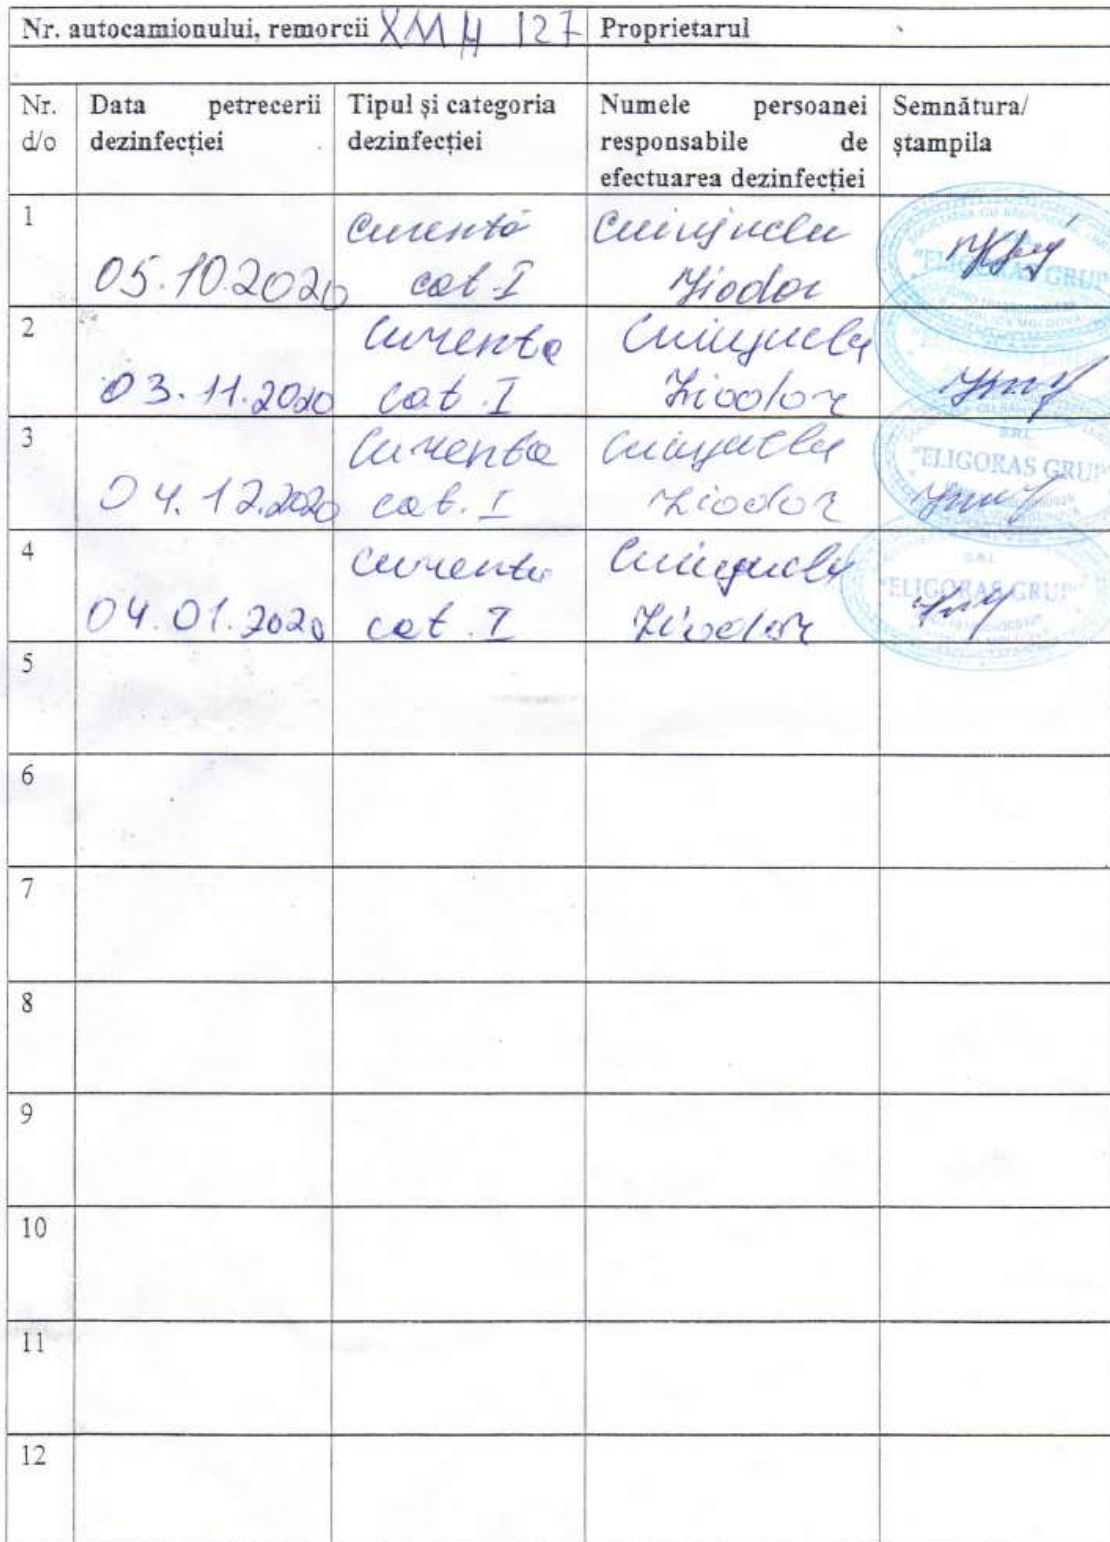 Nr. autocamionului, remorcii XMH 127 Proprietarul
Nr. d/o Data petrecerii dezinfecției Tipul și categoria dezinfecției Numele persoanei responsabile de efectuarea dezinfecției Semnătura/ ștampila
1 05.10.2020 Curentă cat. I
"ELIGORAS GRUP"
2 03.11.2020 Curenta cat. I
3 04.12.2020 Curenta cat. I
S.R.L.
"ELIGORAS GRUP"
4 04.01.2020 Curenta cat. I
S.R.L.
"ELIGORAS GRUP"
5
6
7
8
9
10
11
12